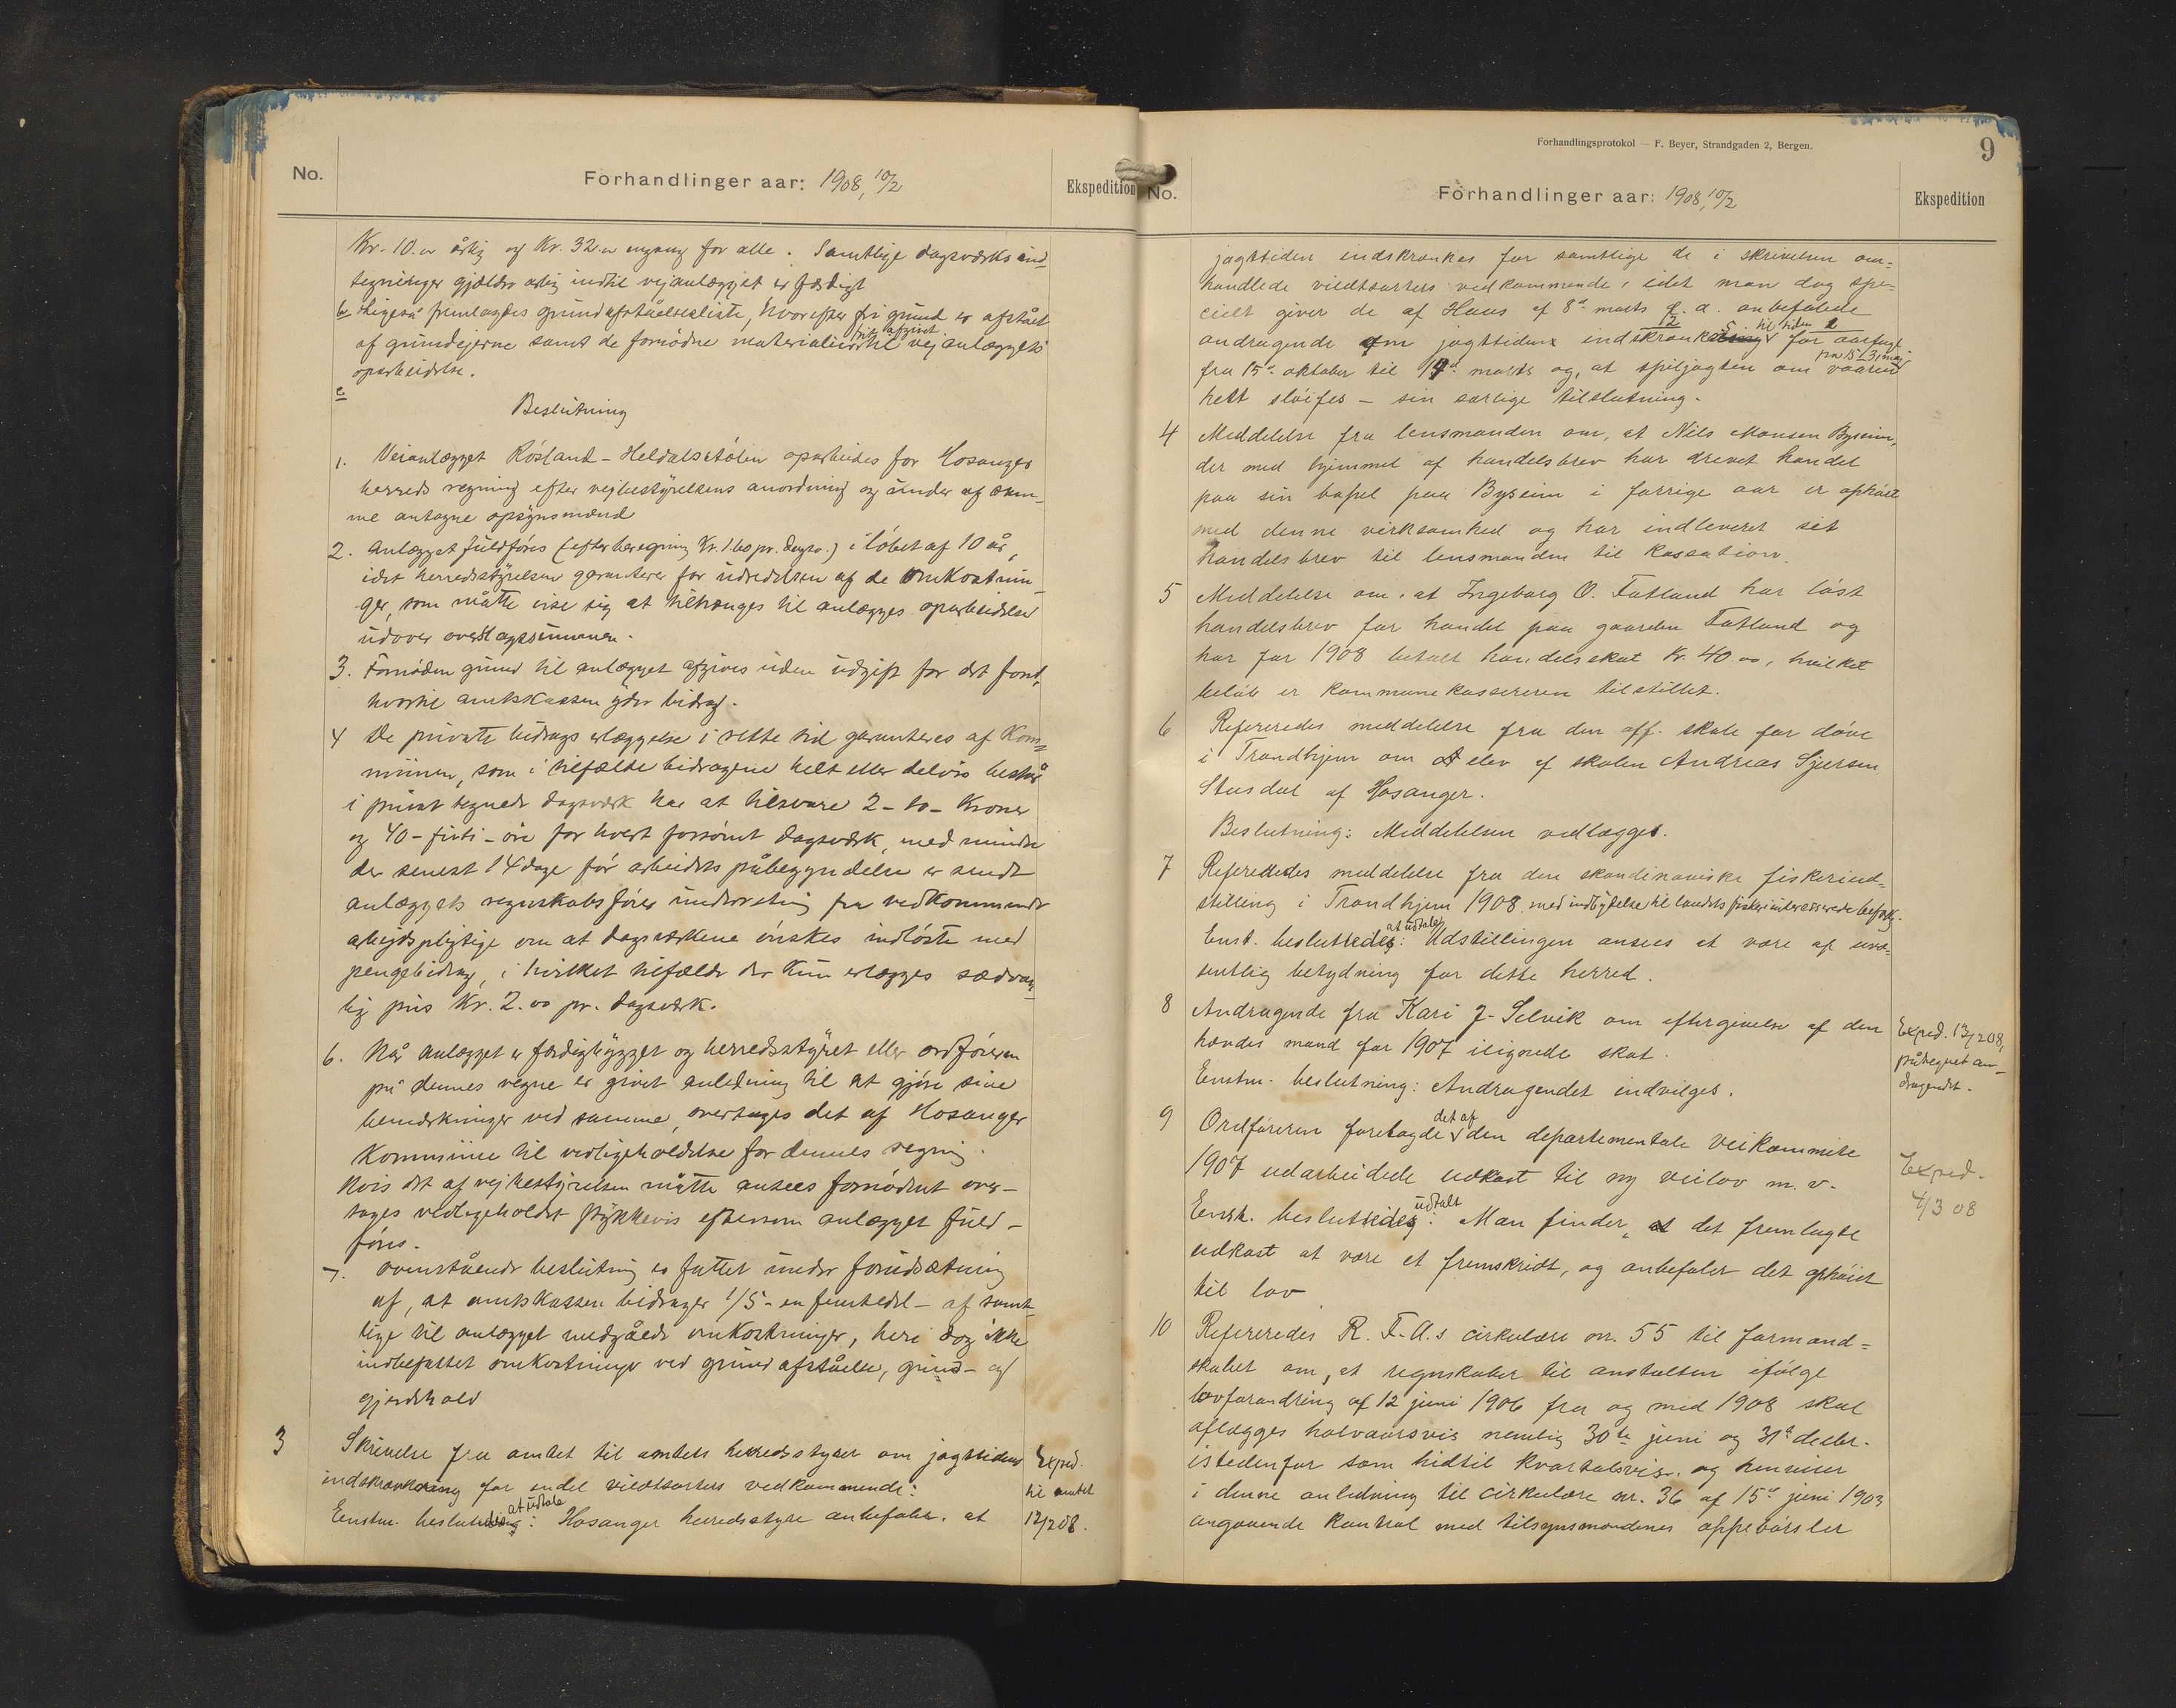 No.
Forhandlinger aar: 1908, 10/2
Ekspedition
Kr. 10.00 årlig og Kr. 32.00 engang for alle. Samtlige dagsværks ind-
tegninger gjælder årlig indtil vejanlægget er færdigt
b Ligeså fremlagdes grundafståelsesliste, hvorefter fri grund er afstået
af grundejerne samt de fornødne materialier frit afgivet til vejanlæggets
oparbeidelse.
c
Beslutning
1. Veianlægget Rösland - Heldalsstölen oparbeides for Hosanger
herreds regning efter vejbestyrelsens anordning og under af sam-
me antagne opsynsmænd
2. Anlægget fuldföres (efter beregning Kr. 1.60 pr. dagsv.) i löbet af 10 år,
idet herredsstyrelsen garanterer for udredelsen af de omkostnin-
ger, som måtte vise sig at tiltrænges til anlægges oparbeidelse
udover overslagssummen.
3. Fornöden grund til anlægget afgives uden udgift for det fond,
hvortil amtskassen yder bidrag.
4 De private bidrags erlæggelse i rette tid garanteres af Kom-
munen, som i tilfælde bidragene helt eller delvis bestå
i privat tegnede dagsværk har at tilsvare 2 - to - Kroner
og 40 - firti - öre for hvert forsömt dagsværk, med mindre
der senest 14 dage för arbeidets påbegyndelse er sendt
anlæggets regnskabsförer underretning fra vedkommende
arbejdspligtige om at dagsværkene önskes indlöste med
pengebidrag, i hvilket tilfælde der kun erlægges sædvan-
lig pris Kr. 2.00 pr. dagsværk.
6. Når anlægget er færdigbygget og herredsstyret eller ordföreren
på dennes vegne er givet anledning til at gjöre sine
bemærkninger ved samme, overtages det af Hosanger
Kommune til vedligeholdelse for dennes regning.
Hvis det af vejbestyrelsen måtte ansees fornödent over-
tages vedligeholdet stykkevis eftersom anlægget fuld-
föres.
7. Ovenstående beslutning er fattet under forudsætning
af, at amtskassen bidrager 1/5 - en femtedel - af samt-
lige til anlægget medgåede omkostninger, heri dog ikke
indbefattet omkostninger ved grundafståelse, grund- og
gjerdehold
3 Skrivelse fra amtet til amtets herredsstyrer om jagttidens
indskrænkning for endel vildtsorters vedkommende:
Enstm. besluttedes at udtale: Hosanger herredsstyre anbefaler, at
Exped.
til amtet
12/2 08.
Forhandlingsprotokol — F. Beyer, Strandgaden 2, Bergen.
9
No.
Forhandlinger aar: 1908, 10/2
Ekspedition
jagttiden indskrænkes for samtlige de i skrivelsen om-
handlede vildtsorters vedkommende, idet man dog spe-
cielt giver de af Haus af 8de marts f. a. anbefalede
andragende om jagttidens indskrænkes for aarfugl til tiden
fra 15de oktober til 14de marts og, at spiljagten om vaaren
helt slöifes - sin særlige tilslutning.
4 Meddelelse fra lensmanden om, at Nils Monsen Byseim,
der med hjemmel af handelsbrev har drevet handel
paa sin bopæl paa Byseim i forrige aar er ophört
med denne virksomhed og har indleveret sit
handelsbrev til lensmanden til kassation.
5 Meddelelse om, at Ingeborg O. Fatland har löst
handelsbrev for handel paa gaarden Fatland og
har for 1908 betalt handelsskat kr. 40.00, hvilket
belöb er kommunekassereren tilstillet.
6 Refereredes meddelelse fra den off. skole for döve
i Trondhjem om at elev af skolen Andreas Sjursen
Stusdal af Hosanger.
Beslutning: Meddelelsen vedlægges.
7 Refereredes meddelelse fra den skandinaviske fiskeriud-
stilling i Trondhjem 1908 med indbydelse til landets fiskeriinteresserede befolkn.
Enst. besluttedes at udtale: Udstillingen ansees at være af uvæ-
sentlig betydning for dette herred.
8 Andragende fra Kari J. Selvik om eftergivelse af den
hendes mand for 1907 ilignede skat.
Enstm. beslutning: Andragendet indvilges.
Exped. 13/2 08,
påtegnet an-
dragendet.
9 Ordföreren forelagde det af den departementale Veikommite
1907 udarbeidede udkast til ny veilov m. v.
Enst. besluttedes udtalt: Man finder, at det fremlagte
udkast at være et fremskridt, og anbefaler det ophöiet
til lov
Exped.
4/3 08
10 Refereredes R. F. A.s cirkulære nr. 55 til formand-
skabet om, at regnskaber til anstalten ifölge
lovforandring af 12 juni 1906 fra og med 1908 skal
aflægges halvaarsvis nemlig 30te juni og 31te decbr.
istedenfor som hidtil kvartalsvis, og henviser
i denne anledning til cirkulære nr. 36 af 15de juni 1903
angaaende kontrol med tilsynsmændenes oppebörsler